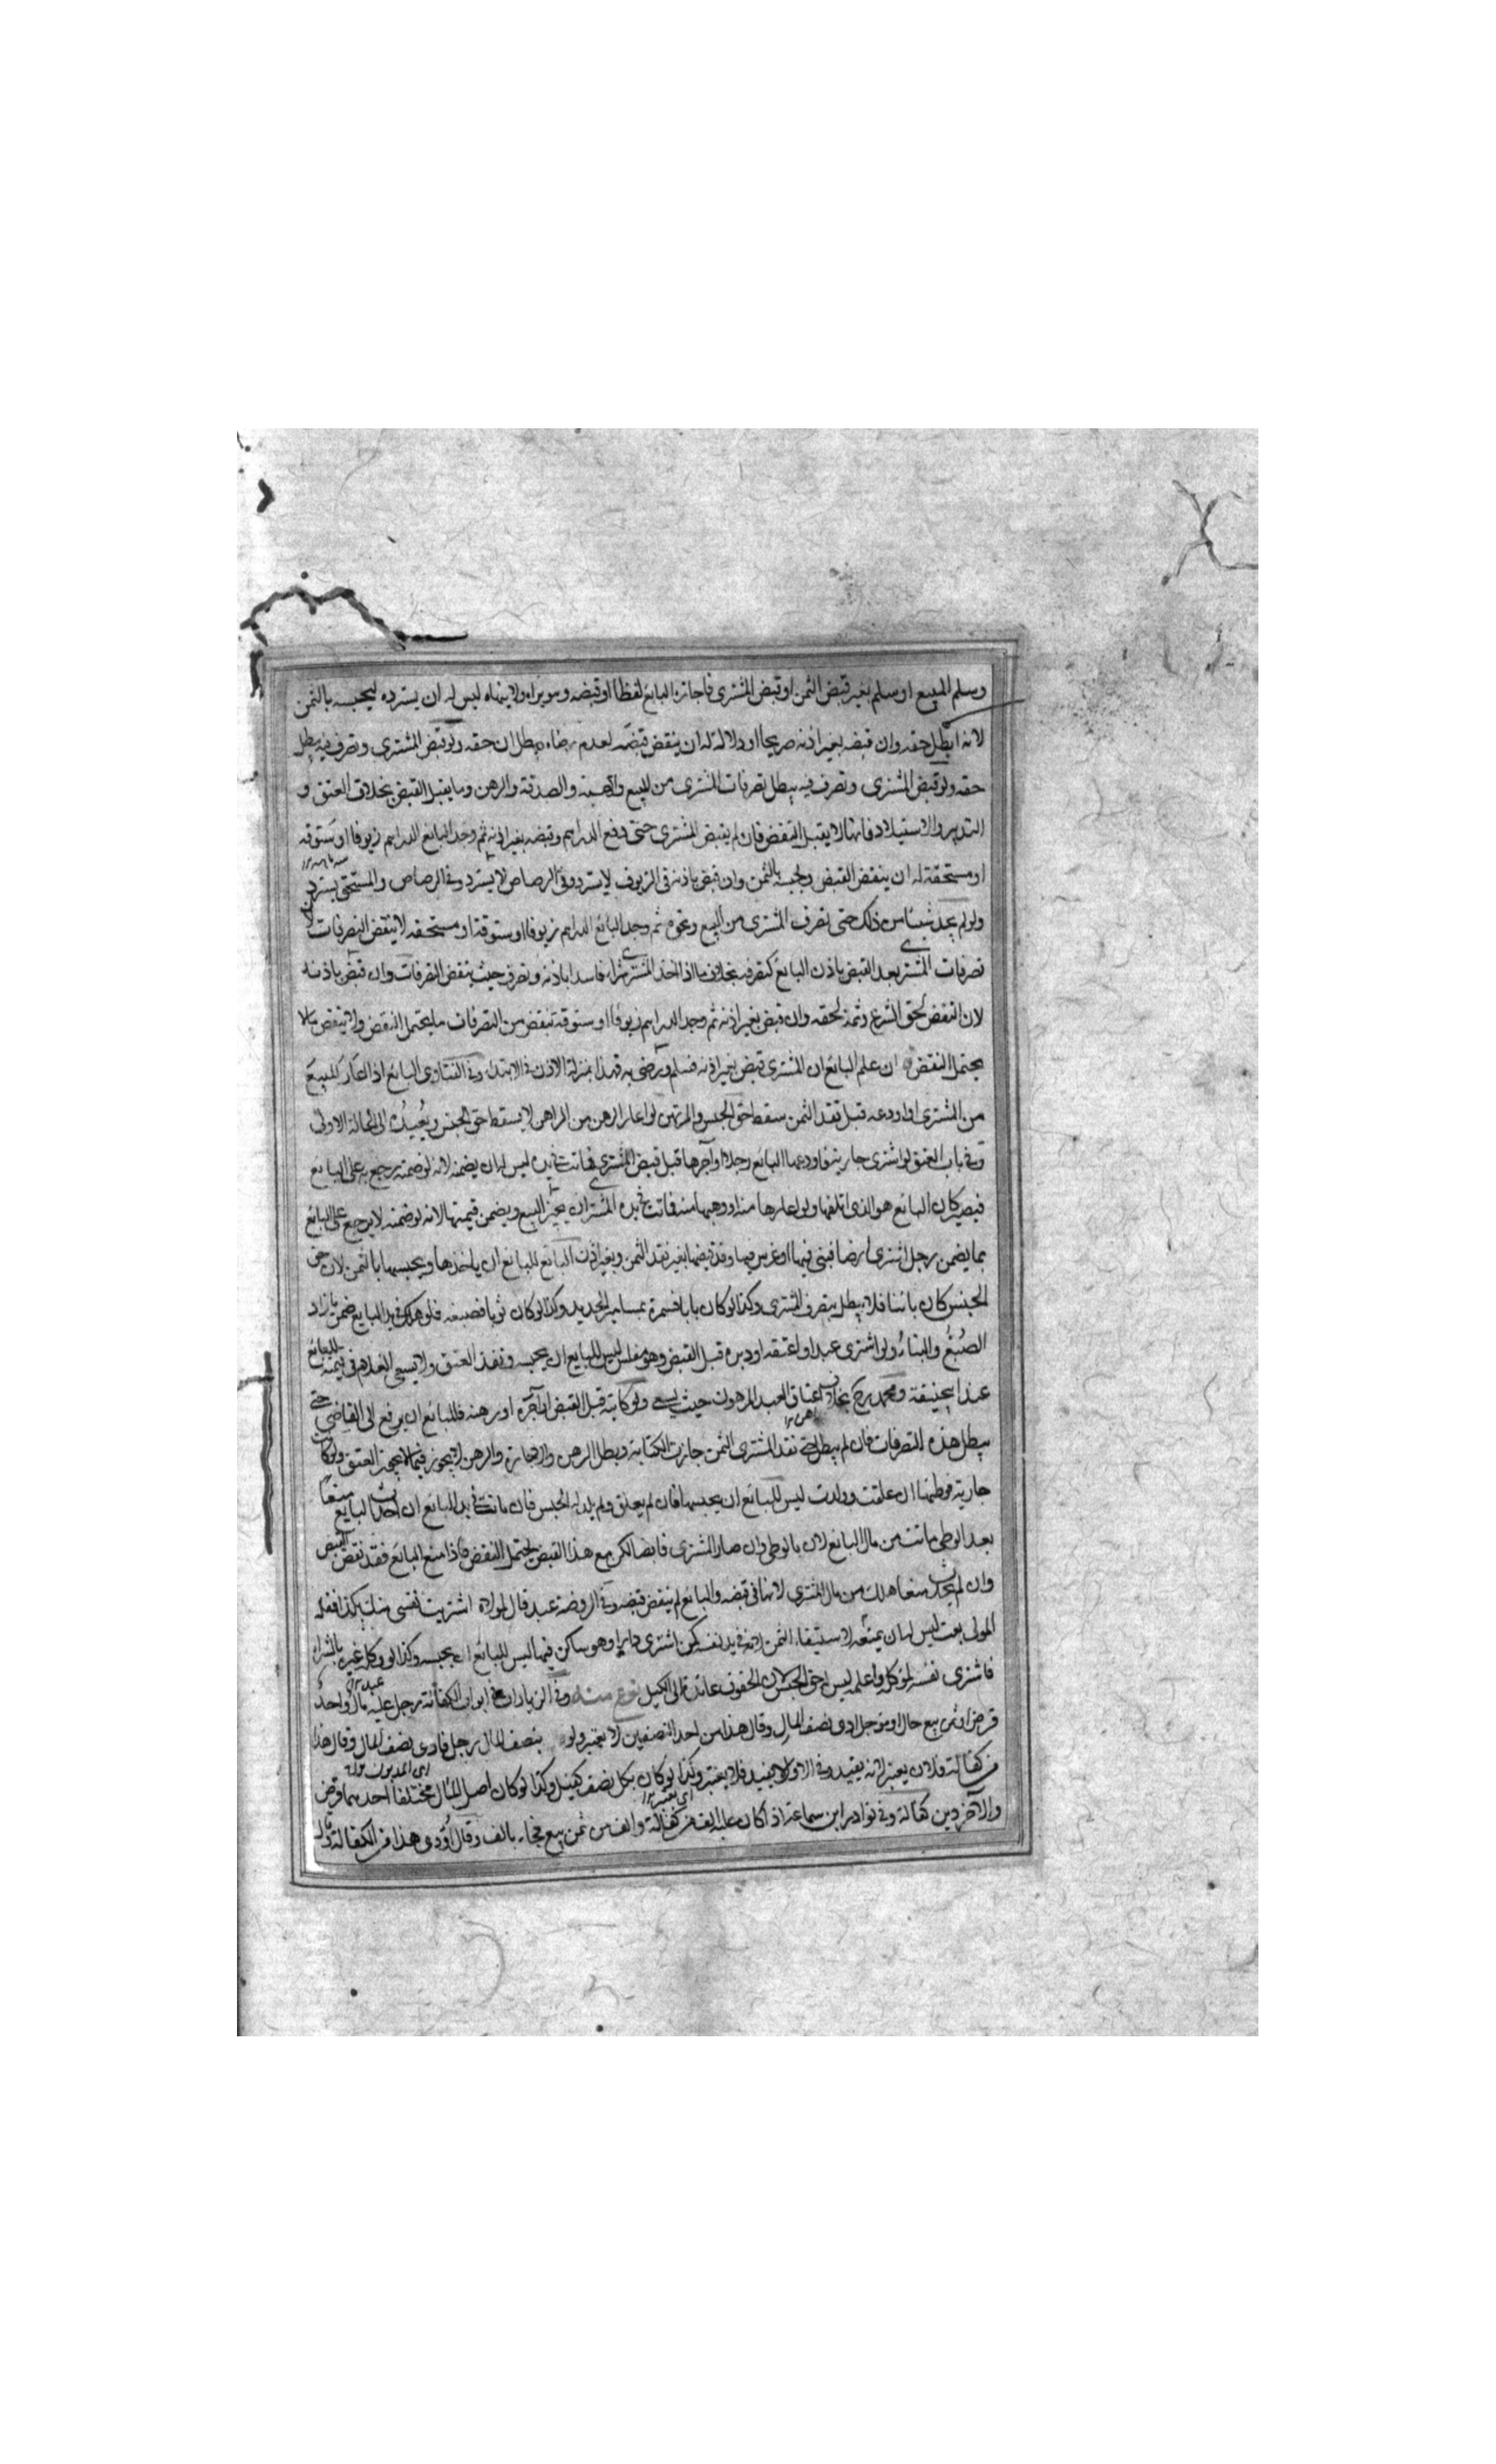 وسلم المبيع او سلم بغير قبض الثمن او قبض المشترى فاجازه البائع لفظا او قبضه وهو يراه ولا ينهاه ليس له ان يسترده ليحبسه بالثمن
لانه ابطل حقه وان قبضه بغير اذنه صريحا او دلالة له ان ينقض قبضه لعدم رضاه ببطلان حقه ولو قبض المشترى وتصرف فيه يبطل
حقه ولو قبض المشترى وتصرف فيه يبطل تصرفات المشترى من البيع والهبة والصدقة والرهن وما يقبل القبض بخلاف العتق و
التدبير والاستيلاد فانها لا يقبل النقض فان لم يقبض المشترى حتى دفع الدراهم وقبضه بغير اذنه ثم وجد البائع الدراهم زيوفا او ستوقة
او مستحقة له ان ينقض القبض ويحبسه بالثمن وان قبض باذنه فى الزيوف لا يسترد وفى الرصاص لا يسترد وفى الرصاص والمستحق يسترد
ولو لم يجد شيئا من ذلك حتى تصرف المشترى من البيع ونحوه ثم وجد البائع الدراهم زيوفا او ستوقة او مستحقة لا ينقض التصرفات لان
تصرفات المشترى بعد القبض باذن البائع كتصرفه بخلاف ما اذا اخذ المشترى شراء فاسدا باذنه وتصرف حيث ينقض التصرفات وان قبض باذنه
لان النقض لحق الشرع وثمة لحقه وان قبض بغير اذنه ثم وجد الدراهم زيوفا او ستوقة تنقض من التصرفات ما يحتمل النقض ولا ينقض ما لا
يحتمل النقض ان علم البائع ان المشترى قبض بغير اذنه فسلم ورضى به فهذا بمنزلة الاذن فى الابتداء وفى الفتاوى البائع اذا اعار المبيع
من المشترى او اودعه قبل نقد الثمن سقط حق الحبس والمرتهن لو اعار الرهن من الراهن لا يسقط حق الحبس ويعيده الى الحالة الاولى
وفى باب العتق لو اشترى جارية فاودعها البائع رجلا او آجرها قبل قبض المشترى فماتت فى يده ليس له ان يضمنه لانه لو ضمنه رجع به على البائع
فيصير كان البائع هو الذى اتلفها ولو اعارها منه او وهبها منه فماتت فى يده المشترى ان يجيز البيع ويضمن قيمتها لانه لو ضمنه لا يرجع على البائع
بما يضمن رجل اشترى ارضا فبنى فيها او غرس فيها وقد قبضها بغير نقد الثمن وبغير اذن البائع للبائع ان ياخذها ويحبسها بالثمن لان حق
الحبس كان ثابتا فلا يبطل بتصرف المشترى وكذا لو كان بابا فسمره بمسامير الحديد وكذا لو كان ثوبا فصبغه فلو هلك فى يد البايع ضمن ما زاد
الصبغ والبناء ولو اشترى عبدا واعتقه او دبره قبل القبض وهو مفلس ليس للبايع ان يحبسه ونفذ العتق ولا يسعى العبد فى قيمته للبائع
عند ابيحنيفة ومحمد رح بخلاف اعتاق العبد المرهون حيث يسعى ولو كاتبه قبل القبض او آجره او رهنه فللبائع ان يرفع الى القاضى حتى
يبطل هذه التصرفات فان لم يبطل حتى نقد المشترى الثمن جازت الكتابة وبطل الرهن والاجارة والرهن لا يجوز فيما لا يجوز العتق ولو كانت
جارية فوطئها ان علقت وولدت ليس للبائع ان يحبسها فان لم يعلق ولم يلد له الحبس فان ماتت فى يد البائع ان احدث البايع منعا
بعد الوطى ماتت من مال البائع لان بالوطى وان صار المشترى قابضا لكن مع هذا القبض يحتمل النقض فاذا منع البائع فقد نقض القبض
وان لم يحدث منعا هلك من مال المشترى لانها فى قبضه والبائع لم ينقض قبضه وفى الروضة عبد قال لمولاه اشتريت نفسى منك بكذا فقال
المولى بعت ليس له ان يمنعه لاستيفاء الثمن لانه فى يد نفسه كمن اشترى دارا وهو ساكن فيها ليس للبائع ان يحبسه وكذا لو وكله غيره بالشراء
فاشترى نفسه لموكله واعلمه ليس له حق الحبس لان الحقوق عائدة الى الوكيل نوع منه وفى الزيادات فى ابواب الكفالة رجل عليه مال واحد
قرض او ثمن بيع حال او مؤجل ادى نصف المال وقال هذا من احد النصفين لا يعتبر ولو بنصف المال رجل فادى نصف المال وقال هذا
من كفالة فلان يعتبر لانه يفيد وفى الاول لا يفيد فلا يعتبر وكذا لو كان بكل نصف كفيل وكذا لو كان اصل المال مختلفا احدهما قرض
والآخر دين كفالة وفى نوادر ابن سماعة اذا كان عليه الف من كفالة والف من ثمن بيع فجاء بالف وقال اؤدى هذا من الكفالة